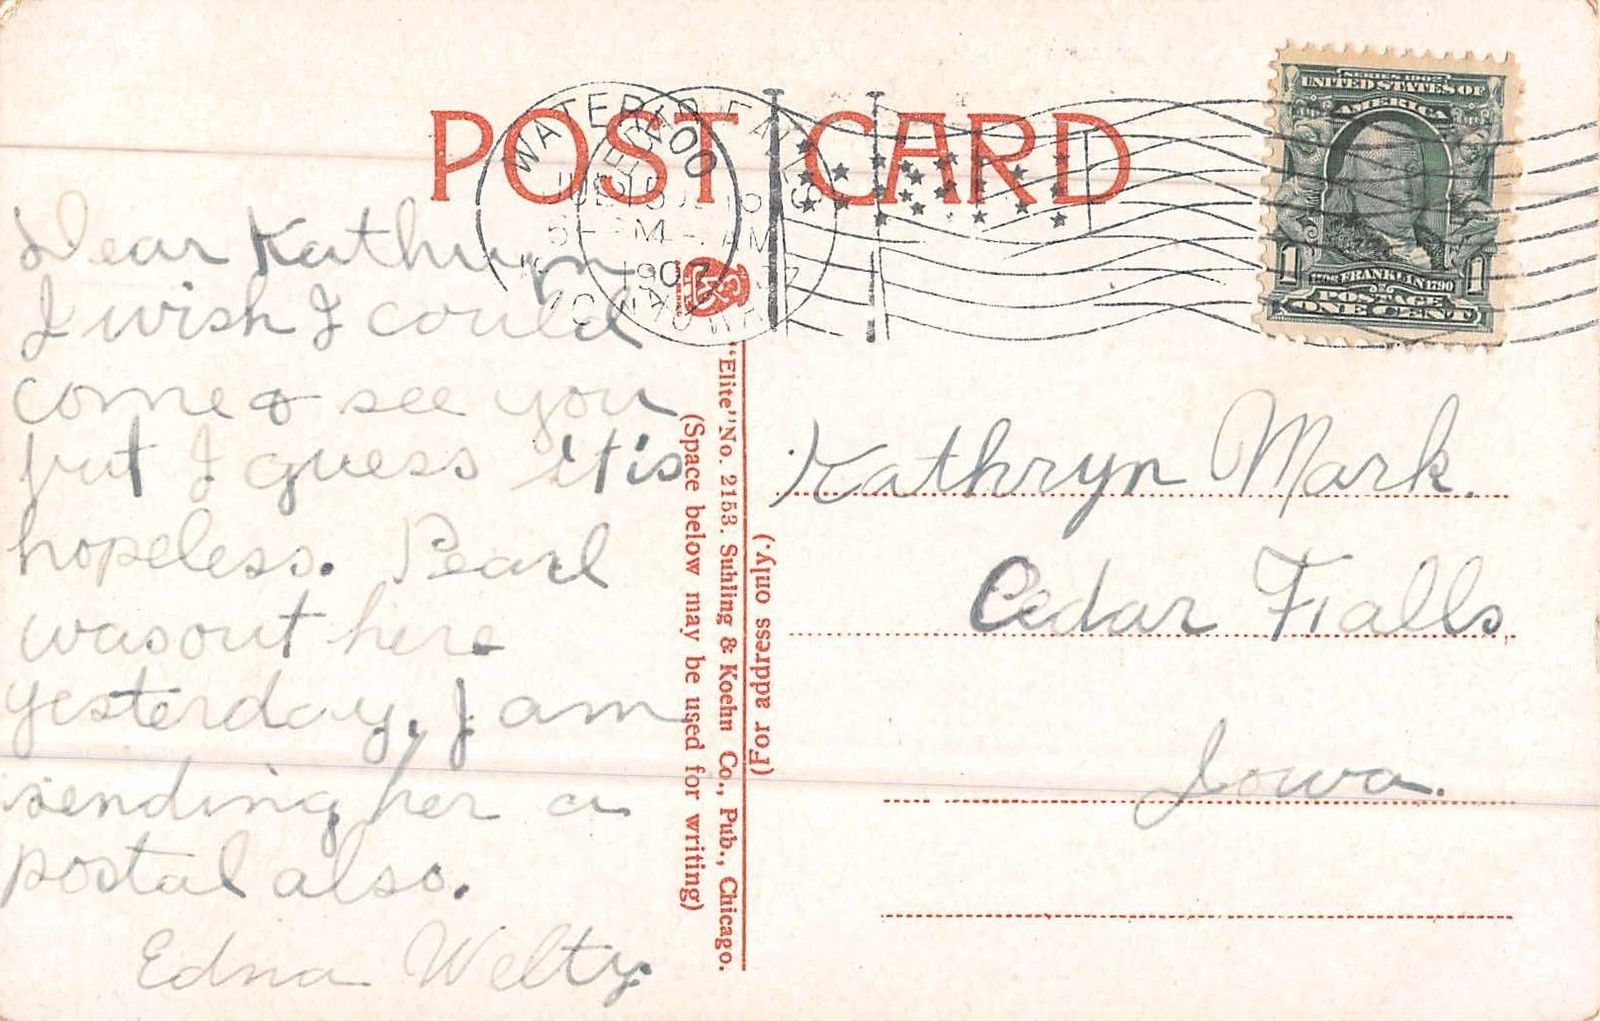 POST CARD
WATERLOO
1907
IOWA
SERIES 1902
UNITED STATES OF
AMERICA
1 1
1706 FRANKLIN 1790
POSTAGE
ONE CENT
Dear Kathryn
I wish I could
come & see you
but I guess it is
hopeless. Pearl
was out here
yesterday, I am
sending her a
postal also.
Edna Welty.
"Elite" No. 2153. Suhling & Koehn Co., Pub., Chicago.
(Space below may be used for writing)
(For address only.)
Kathryn Mark.
Cedar Falls,
Iowa.